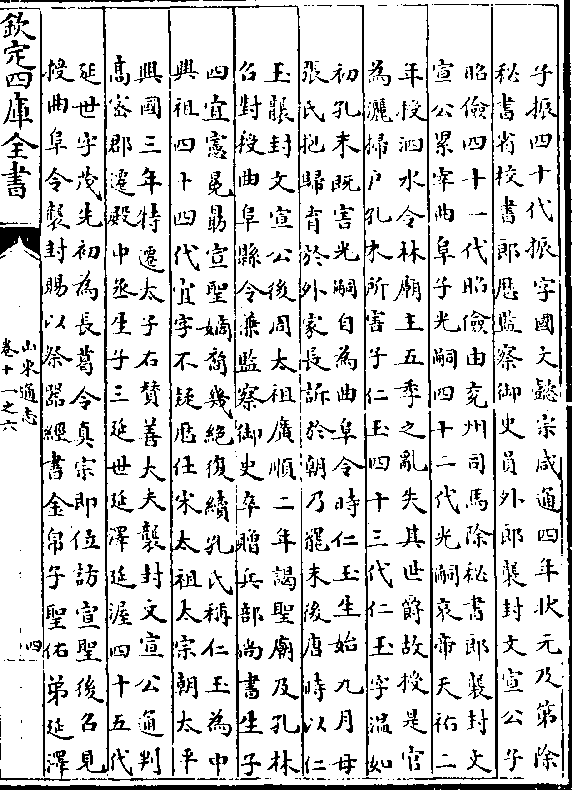 子振四十代振字國文懿宗咸通四年狀元及第除
秘書省校書郎歴監察御史員外郎襲封文宣公子
昭儉四十一代昭儉由兗州司馬除秘書郎襲封文
宣公累宰曲阜子光嗣四十二代光嗣哀帝天祐二
年授泗水令林廟主五季之亂失其世爵故授是官
為灑掃户孔末所害子仁玉四十三代仁玉字溫如
初孔末既害光嗣自為曲阜令時仁玉生始九月母
張氏抱歸育於外家長訴於朝乃罷末後唐時以仁
玉襲封文宣公後周太祖廣順二年謁聖廟及孔林
召對授曲阜縣令兼監察御史卒贈兵部尚書生子
四宜憲冕勗宣聖嫡裔幾絶復續孔氏稱仁玉為中
興祖四十四代宜字不疑歴仕宋太祖太宗朝太平
興國三年特遷太子右贊善大夫襲封文宣公通判
高密郡遷殿中丞生子三延世延澤延渥四十五代
延世字茂先初為長葛令真宗即位訪宣聖後召見
授曲阜令襲封賜以祭器經書金帛子聖佑弟延澤
欽定四庫全書
山東通志
卷十一之六
四